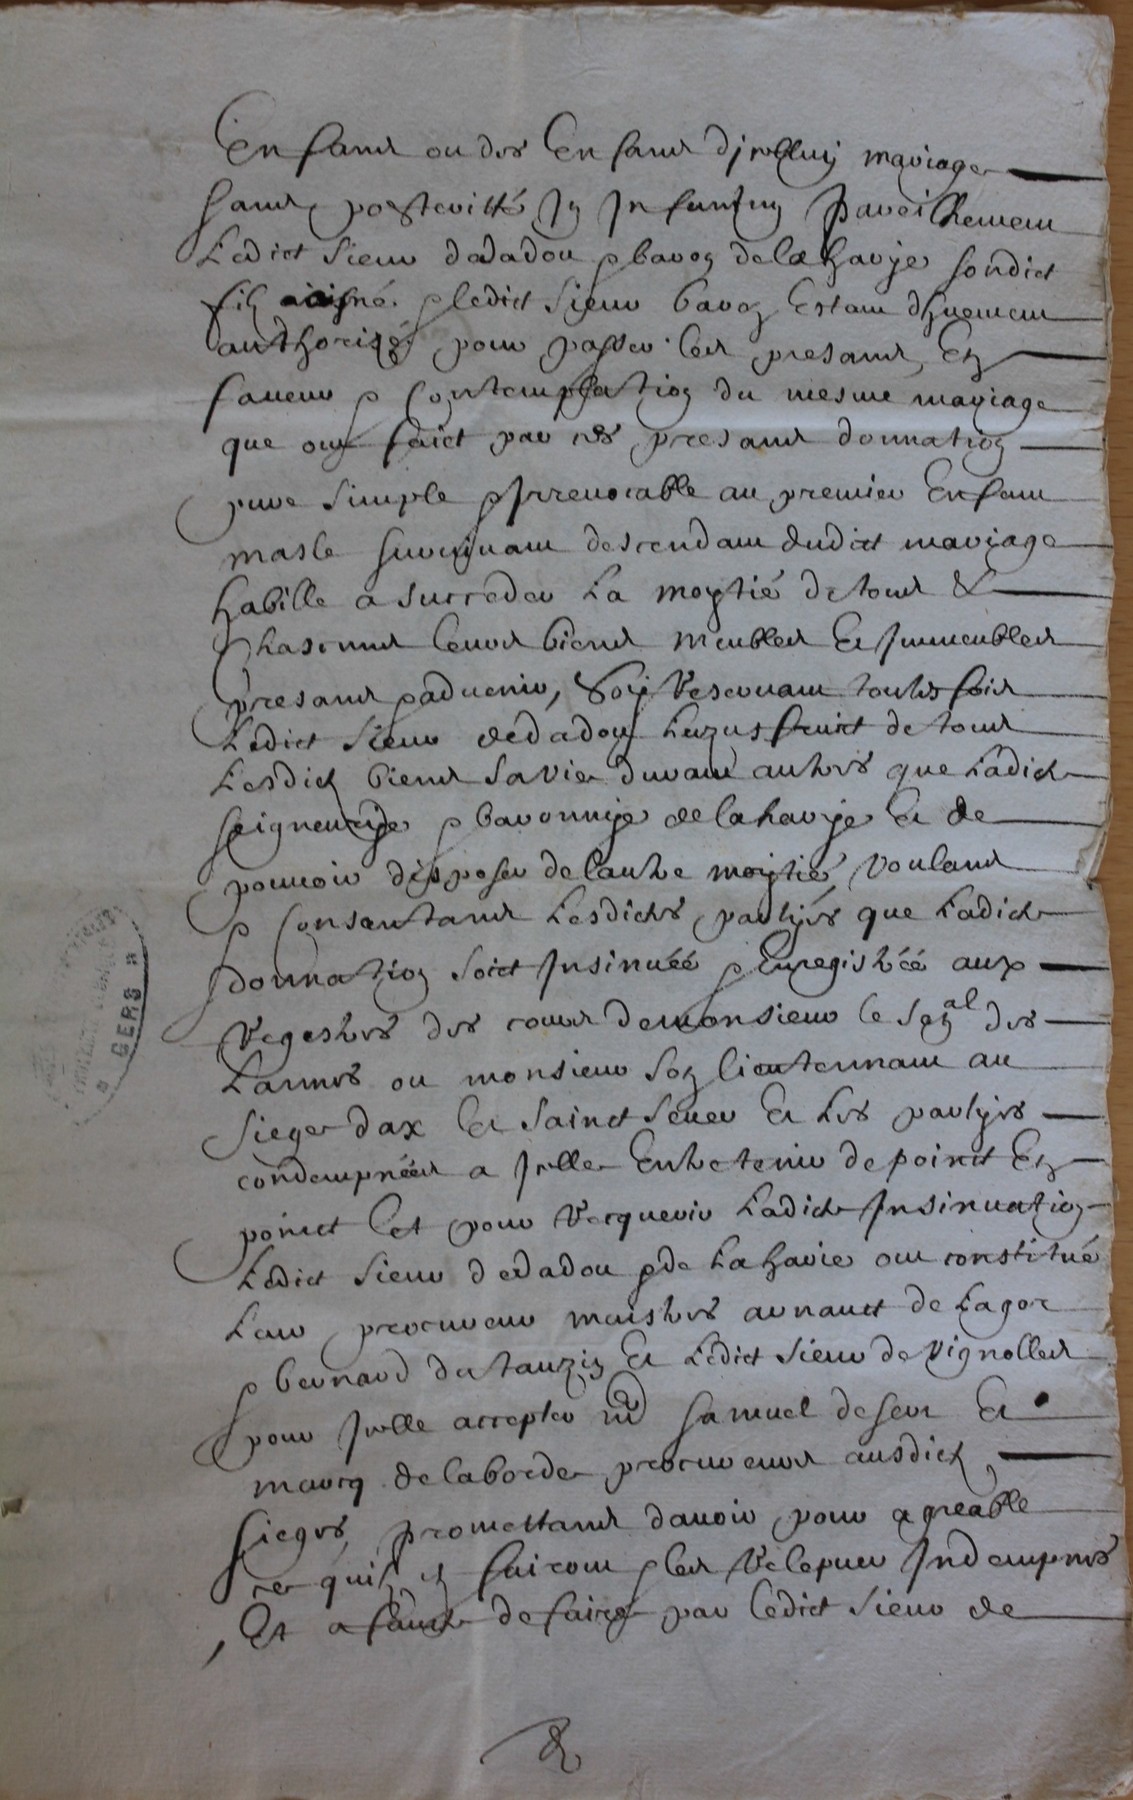 Enfans ou des Enfans d'jcelluy mariage
sans posteritté, Et En faveur pareilhement
Ledict sieur dadadou & baron de la harye sondict
filz aisné & ledict sieur baron Estant dhuement
authorizé pour passer les presans, En
faueur & contemplation du mesme mariage
que ont faict par ces presans donnation
pure simple & Irreuocable au premier Enfant
masle suruiuant descendant dudict mariage
habille a succeder La moytié de tous &
chascuns leurs biens meubles Et Immeubles
presans & aduenir, soy reseruant toutesfois
Ledict sieur dedadou Luzusfruict de tous
Lesdictz biens sa vie durant autres que Ladicte
seigneurye & baronnye de la harye Et de
pouuoir disposer de lautre moytié, voulans
& consentans Lesdictes partyes que Ladicte
donnation soict Insinuéé & Enregistréé aux
regestres des cours de monsieur le sen^al des
Lannes ou monsieur son lieutennant au
siege dax Et sainct seuer Et Les partyes
condempnées a Jcelle Entretenir de poinct En
poinct Et pour requerir Ladicte Insinuation
Ledict sieur dedadou & de La harie ont constitué
Leur procureur maistres arnauct de Lagor
& bernard de tauzin Et Ledict sieur de vignolles
pour Jcelle accepter Me samuel de seux Et
marcq de laborde procureurs ausdictz
sieges, promettans dauoir pour agreable
ce quilz En fairont & les releuer Indempnes
Et a faute de faire par Ledict sieur de
GERS